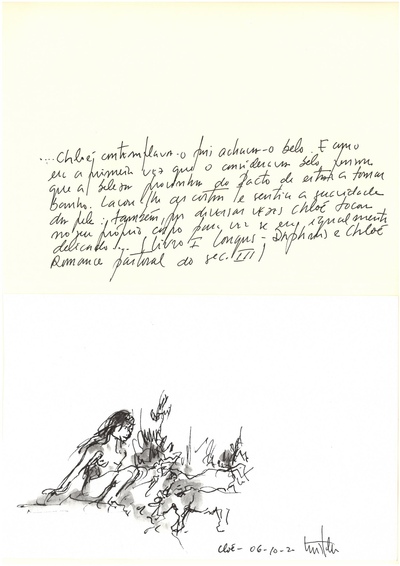 ...Chloé contemplava-o foi achava-o belo. E como
era a primeira vez que o considerava belo, pensou
que a beleza provinha do facto de estar a tomar
banho. Lavou-lhe as costas e sentiu a suavidade
da pele. também por diversas vezes Chloé tocou
no seu próprio corpo para ver se era igualmente
delicado... (livro I Longus - Daphnis e Chloé
Romance pastoral do sec. III)
Cloé - 06-10-2